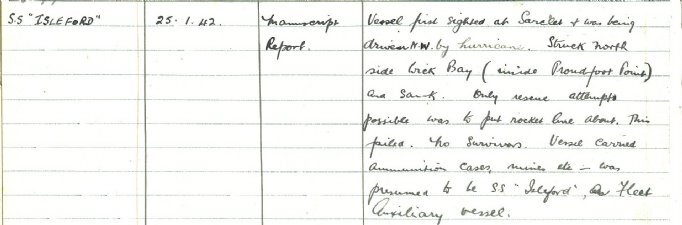 S.S "ISLEFORD" 25.1.42. Manuscript Vessel first sighted at Sarclet & was being
Report. driven N.W. by hurricane. Struck North
side Wick Bay (inside Proudfoot Point)
and Sank. Only rescue attempt
possible was to put rocket line aboard. This
failed. No Survivors. Vessel carried
ammunition cases, mines etc – was
presumed to be SS "Isleford", Fleet
Auxiliary vessel.